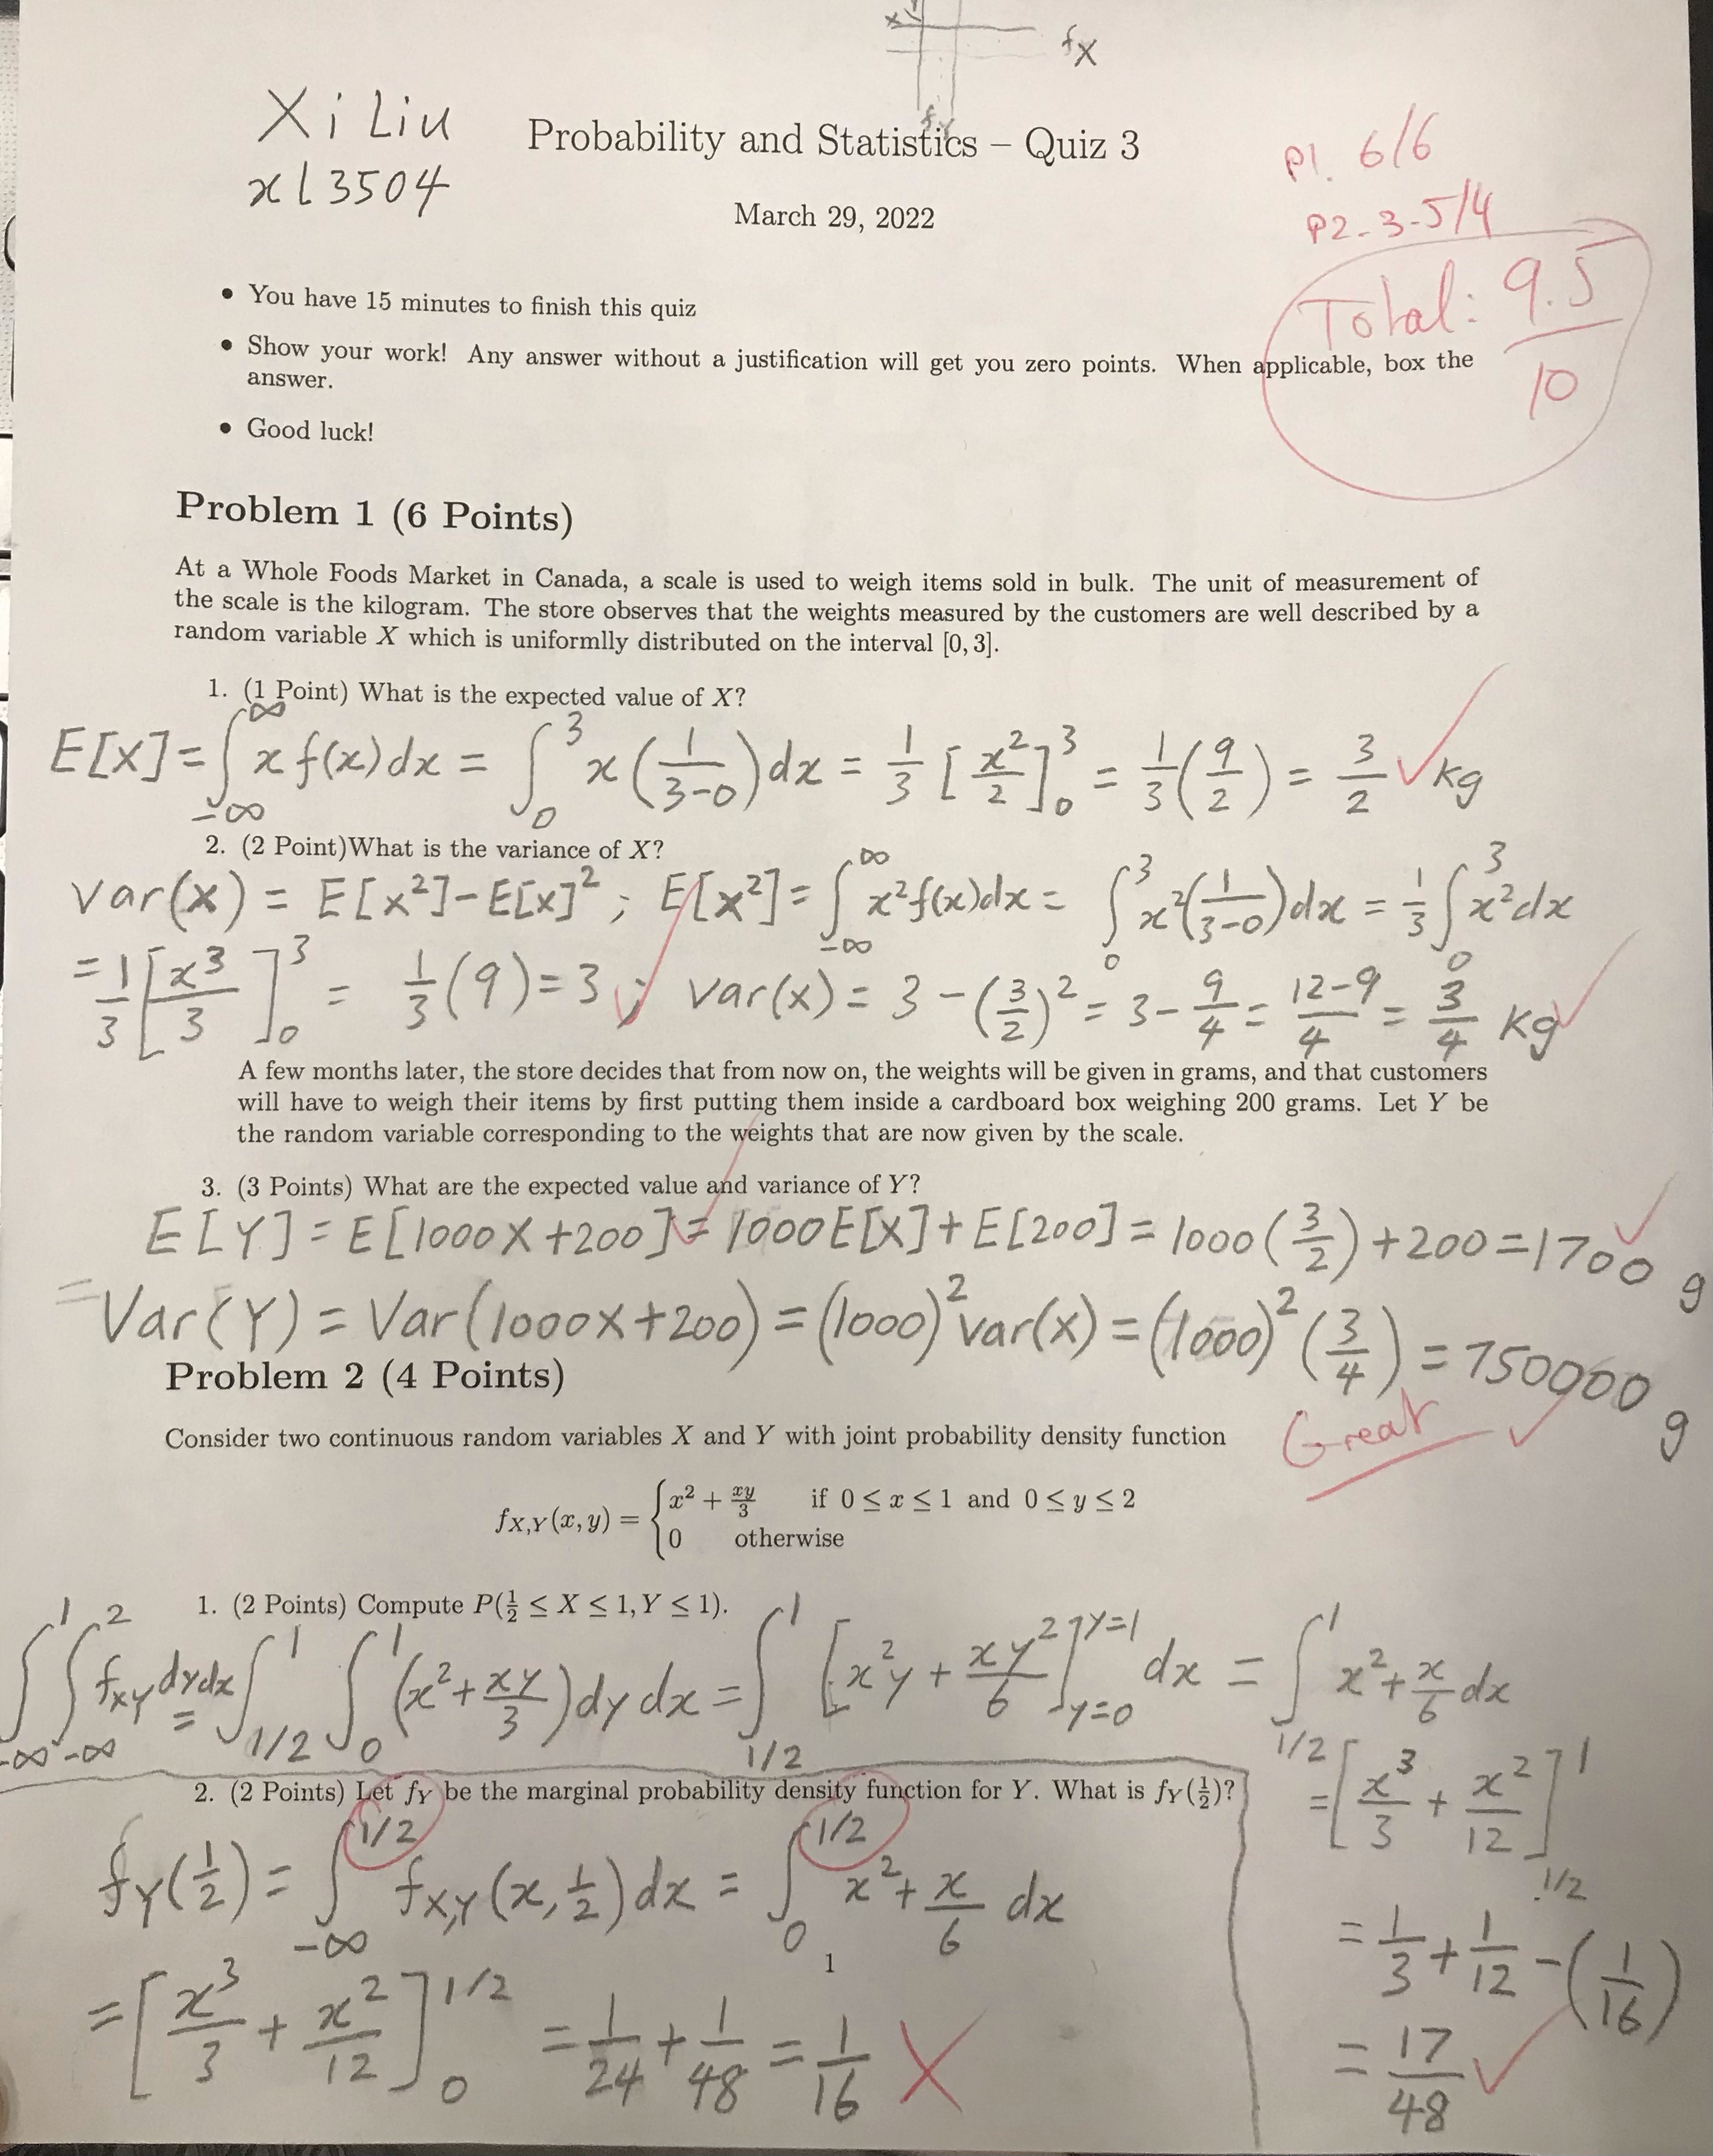 x Y
fX
Xi Liu
xl3504
Probability and Statistics – Quiz 3
March 29, 2022
P1. 6/6
P2-3-5/4
Total: 9.5/10
• You have 15 minutes to finish this quiz
• Show your work! Any answer without a justification will get you zero points. When applicable, box the
answer.
• Good luck!
Problem 1 (6 Points)
At a Whole Foods Market in Canada, a scale is used to weigh items sold in bulk. The unit of measurement of
the scale is the kilogram. The store observes that the weights measured by the customers are well described by a
random variable X which is uniformlly distributed on the interval [0, 3].
1. (1 Point) What is the expected value of X?
E[X] = ∫_{-∞}^{∞} x f(x) dx = ∫_0^3 x (1/(3-0)) dx = 1/3 [x²/2]_0^3 = 1/3 (9/2) = 3/2 ✓ kg
2. (2 Point)What is the variance of X?
Var(X) = E[X²] - E[X]² ; E[X²] = ∫_{-∞}^{∞} x² f(x) dx = ∫_0^3 x² (1/(3-0)) dx = 1/3 ∫_0^3 x² dx
= 1/3 [x³/3]_0^3 = 1/3 (9) = 3 ✓ ; Var(X) = 3 - (3/2)² = 3 - 9/4 = (12-9)/4 = 3/4 kg ✓
A few months later, the store decides that from now on, the weights will be given in grams, and that customers
will have to weigh their items by first putting them inside a cardboard box weighing 200 grams. Let Y be
the random variable corresponding to the weights that are now given by the scale.
3. (3 Points) What are the expected value and variance of Y?
E[Y] = E[1000X + 200] ✓ = 1000E[X] + E[200] = 1000 (3/2) + 200 = 1700 ✓ g
= Var(Y) = Var(1000X + 200) = (1000)² var(X) = (1000)² (3/4) = 750000 g
Great ✓
Problem 2 (4 Points)
Consider two continuous random variables X and Y with joint probability density function
f_{X,Y}(x, y) = { x² + xy/3 if 0 ≤ x ≤ 1 and 0 ≤ y ≤ 2
0 otherwise
1. (2 Points) Compute P(1/2 ≤ X ≤ 1, Y ≤ 1).
∫_{-∞}^1 ∫_{-∞}^2 f_{XY} dydx = ∫_{1/2}^1 ∫_0^1 (x² + xy/3) dy dx = ∫_{1/2}^1 [x²y + xy²/6]_{y=0}^{y=1} dx = ∫_{1/2}^1 x² + x/6 dx
= [x³/3 + x²/12]_{1/2}^1
= 1/3 + 1/12 - (1/16)
= 17/48 ✓
2. (2 Points) Let f_Y be the marginal probability density function for Y. What is f_Y(1/2)?
f_Y(1/2) = ∫_{-∞}^{1/2} f_{X,Y}(x, 1/2) dx = ∫_0^{1/2} x² + x/6 dx
= [x³/3 + x²/12]_0^{1/2} = 1/24 + 1/48 = 1/16 X
1